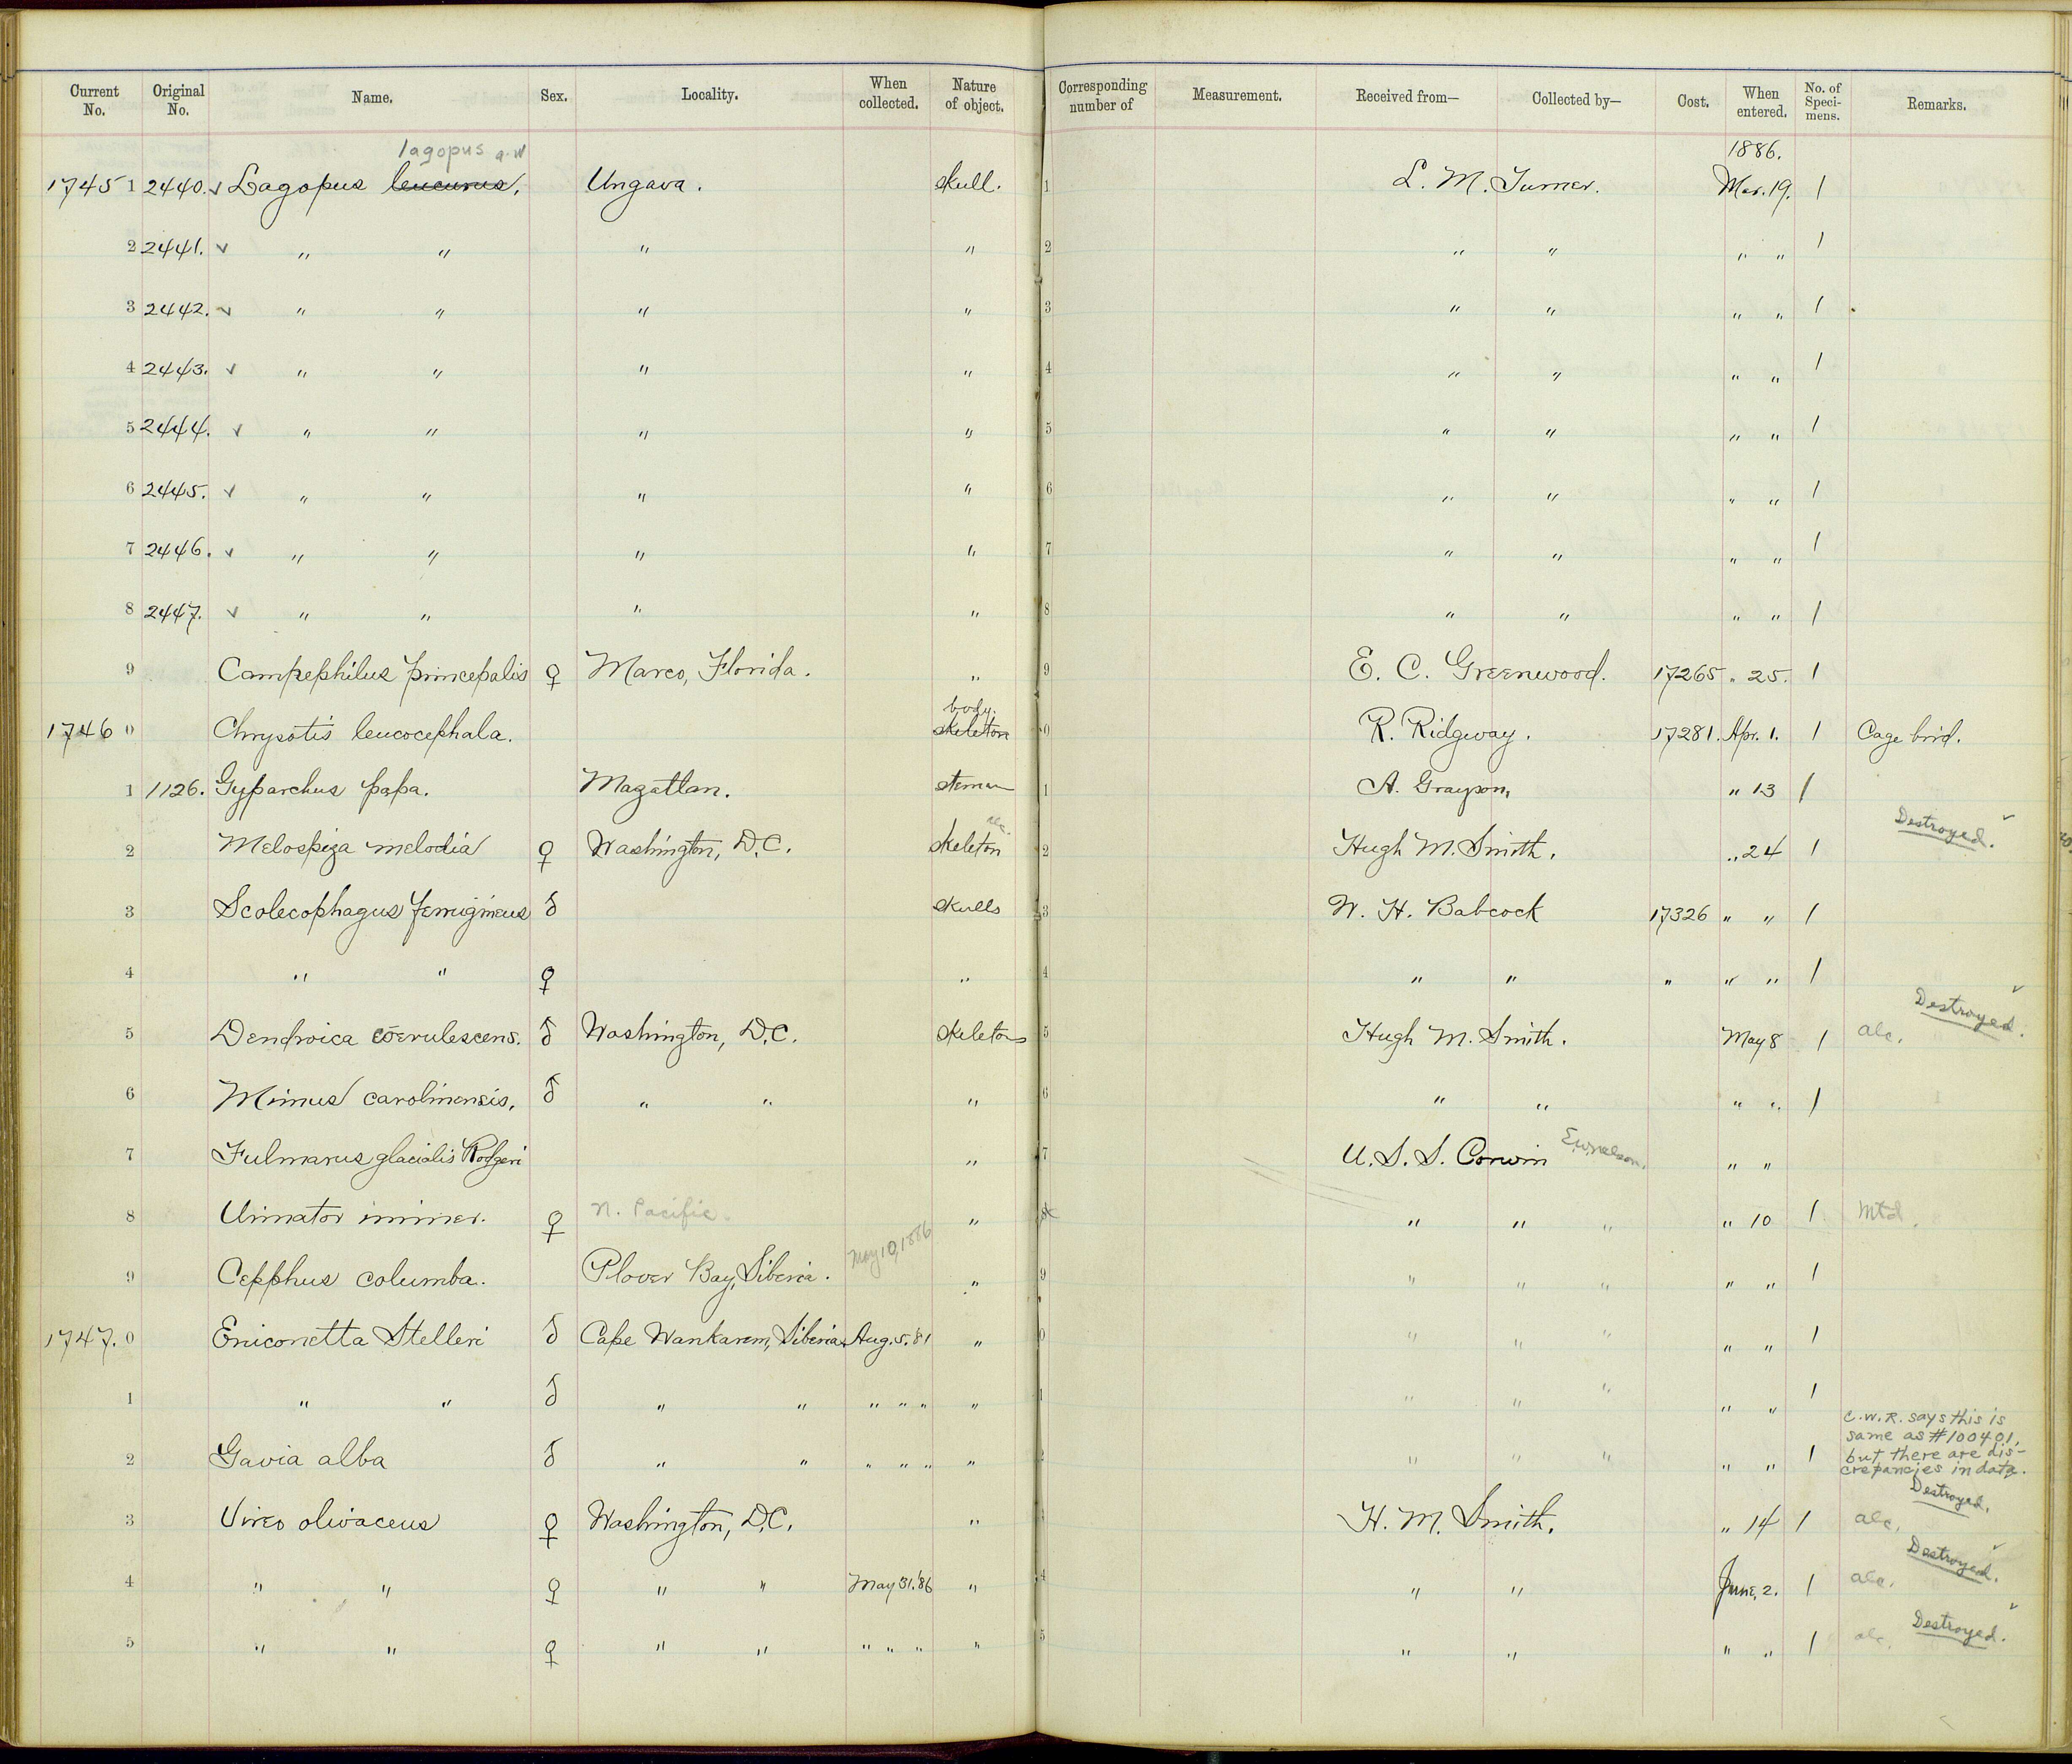 Current No. Original No. Name. Sex. Locality. When collected. Nature of object. Corresponding number of Measurement. Received from— Collected by— Cost. When entered. No. of Speci-mens. Remarks.
lagopus 1886.
17451 2440. v Lagopus leucurus. Ungava. skull. 1 L. M. Turner. Mar. 19. 1
2 2441. v " " " " 2 " " " " 1
3 2442. v " " " " 3 " " " " 1
4 2443. v " " " " 4 " " " " 1
5 2444. v " " " " 5 " " " " 1
6 2445. v " " " " 6 " " " " 1
7 2446. v " " " " 7 " " " " 1
8 2447. v " " " " 8 " " " " 1
9 Campephilus princepalis ♀ Marco, Florida. " 9 E. C. Greenwood. 17265 " 25. 1
body.
1746 0 Chrysotis leucocephala. skeleton 0 R. Ridgway. 17281. Apr. 1. 1 Cage brid.
1 1126. Gyparchus papa. Mazatlan. sternum 1 A. Grayson, " 13 1
2 Melospiza melodia ♀ Washington, D.C. skeleton alc. 2 Hugh M. Smith. " 24 1 Destroyed. v
3 Scolecophagus ferrugineus ♂ skulls 3 W. H. Babcock 17326 " " 1
4 " " ♀ " 4 " " " " " 1
5 Dendroica coerulescens. ♂ Washington, D.C. skeletons 5 Hugh M. Smith. May 8 1 alc. Destroyed. v
6 Mimus carolinensis. ♂ " " " 6 " " " " 1
7 Fulmarus glacialis Rodgeri " 7 U. S. S. Corwin E.W. Nelson. " "
8 Urinator immer. ♀ N. Pacific. " " " " " 10 1 Mtd.
9 Cepphus columba. Plover Bay, Siberia. May 10, 1886 " 9 " " " " " 1
1747. 0 Eniconetta Stelleri ♂ Cape Wankarem, Siberia Aug. 5. '81 " 0 " " " " " 1
1 " " ♂ " " " " " " 1 " " " " " 1
2 Gavia alba ♂ " " " " " " 2 " " " " " 1 C.W.R. says this is
same as #100401,
but there are dis-
crepancies in data.
3 Vireo olivaceus ♀ Washington, D.C. " H. M. Smith. " 14 1 alc. Destroyed.
4 " " ♀ " " May 31. '86 " 4 " " June, 2. 1 alc. Destroyed. v
5 " " ♀ " " " " " " 5 " " " " 1 alc. Destroyed. v